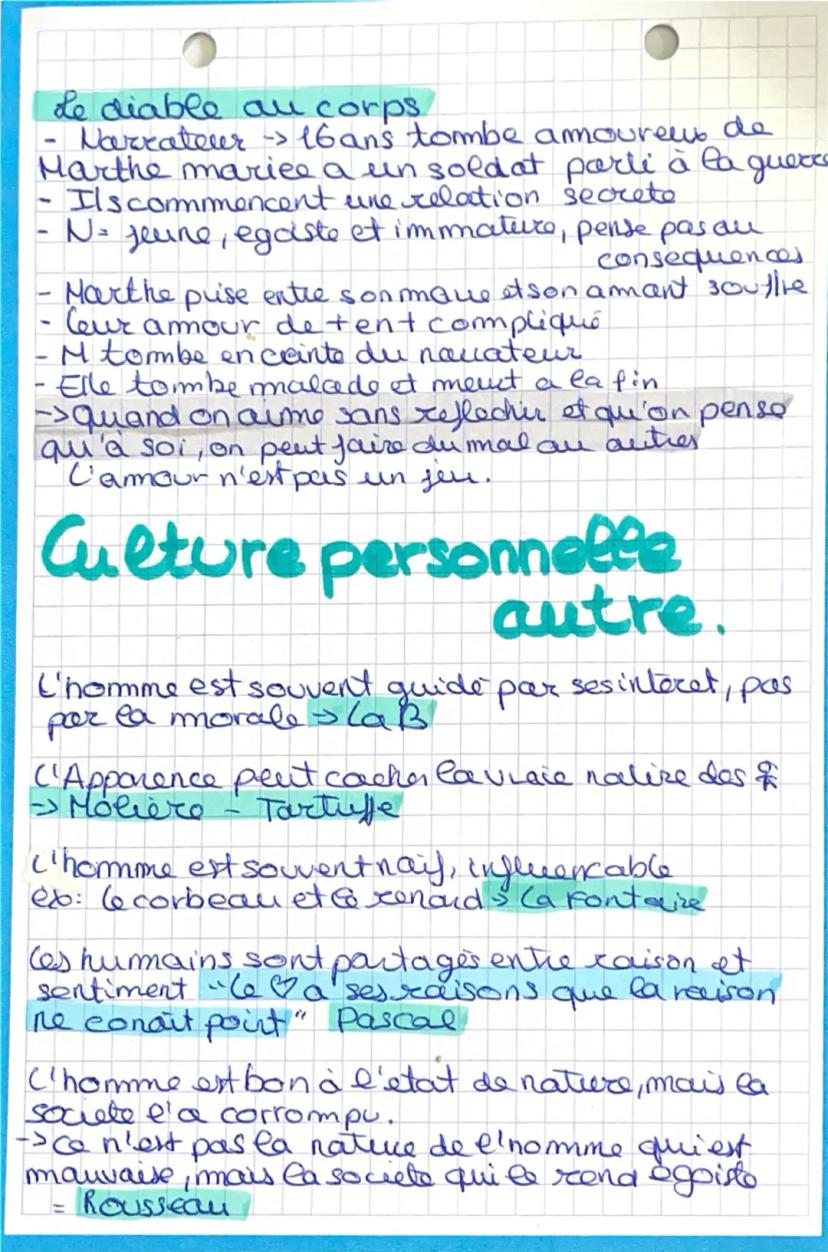 Le diable au corps
- Narrateur -> 16 ans tombe amoureux de
Marthe mariée a un soldat parti à la guerre
- Ils commencent une relation secrete
- N = jeune, egoiste et immature, pense pas au
consequences
- Marthe prise entre son mari et son amant souffre
- leur amour de + en + compliqué
- M tombe enceinte du narrateur
- Elle tombe malade et meurt a la fin
-> quand on aime sans reflechir et qu'on pense
qu'à soi, on peut faire du mal au autres
L'amour n'est pas un jeu.
Culture personnelle
autre.
L'homme est souvent guidé par ses interet, pas
par la morale -> La B
L'Apparence peut cacher la vraie nature des
-> Molière - Tartuffe
L'homme est souvent naïf, influencable
ex: le corbeau et le renard -> La Fontaine
Les humains sont partagés entre raison et
sentiment "le ♡ a ses raisons que la raison
ne conait point" Pascal
L'homme est bon à l'etat de nature, mais la
societe l'a corrompu.
-> ce n'est pas la nature de l'homme qui est
mauvaise, mais la societe qui le rend égoiste
= Rousseau